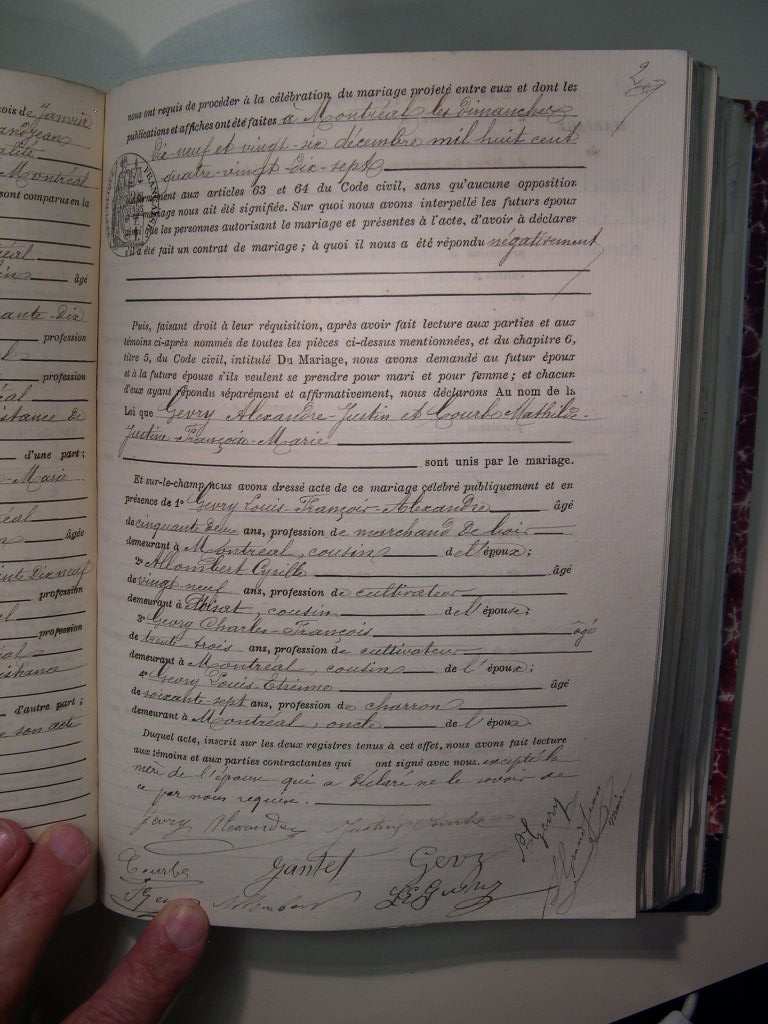 ois de Janvier
andjean
alité
Montréal
sont comparus en la
réal
âgé
ante-dix
profession
profession
réal
istance de
d'une part;
Marie
réal
âgée
ante dix neuf
profession
profession
réal
sistance
d'autre part;
e son acte
2
nous ont requis de procéder à la célébration du mariage projeté entre eux et dont les
publications et affiches ont été faites à Montréal les dimanches
dix neuf et vingt-six décembre mil huit cent
quatre-vingt-dix-sept
conformément aux articles 63 et 64 du Code civil, sans qu'aucune opposition
mariage nous ait été signifiée. Sur quoi nous avons interpellé les futurs époux
ainsi que les personnes autorisant le mariage et présentes à l'acte, d'avoir à déclarer
s'il a été fait un contrat de mariage; à quoi il nous a été répondu négativement
Puis, faisant droit à leur réquisition, après avoir fait lecture aux parties et aux
témoins ci-après nommés de toutes les pièces ci-dessus mentionnées, et du chapitre 6,
titre 5, du Code civil, intitulé Du Mariage, nous avons demandé au futur époux
et à la future épouse s'ils veulent se prendre pour mari et pour femme; et chacun
d'eux ayant répondu séparément et affirmativement, nous déclarons Au nom de la
Loi que Gevry Alexandre-Justin et Courbe Mathilde-
Justine-François-Marie
sont unis par le mariage.
Et sur-le-champ nous avons dressé acte de ce mariage célébré publiquement et en
présence de 1º Gevry Louis-François-Alexandre âgé
de cinquante deux ans, profession de marchand de bois
demeurant à Montréal, cousin de l'époux;
2º Allombert Cyrille âgé
de vingt-neuf ans, profession de cultivateur
demeurant à , cousin de l'épouse;
3º Gevry Charles-François âgé
de trente-trois ans, profession de cultivateur
demeurant à Montréal, cousin de l'époux;
4º Gevry Louis Etienne âgé
de soixante-sept ans, profession de charron
demeurant à Montréal, oncle de l'époux
Duquel acte, inscrit sur les deux registres tenus à cet effet, nous avons fait lecture
aux témoins et aux parties contractantes qui ont signé avec nous, excepté la
mère de l'épouse qui a déclaré ne le savoir de
ce par nous requise.
Gevry Alexandre Justine Courbe
Courbe Gantet Gevry
Gevry